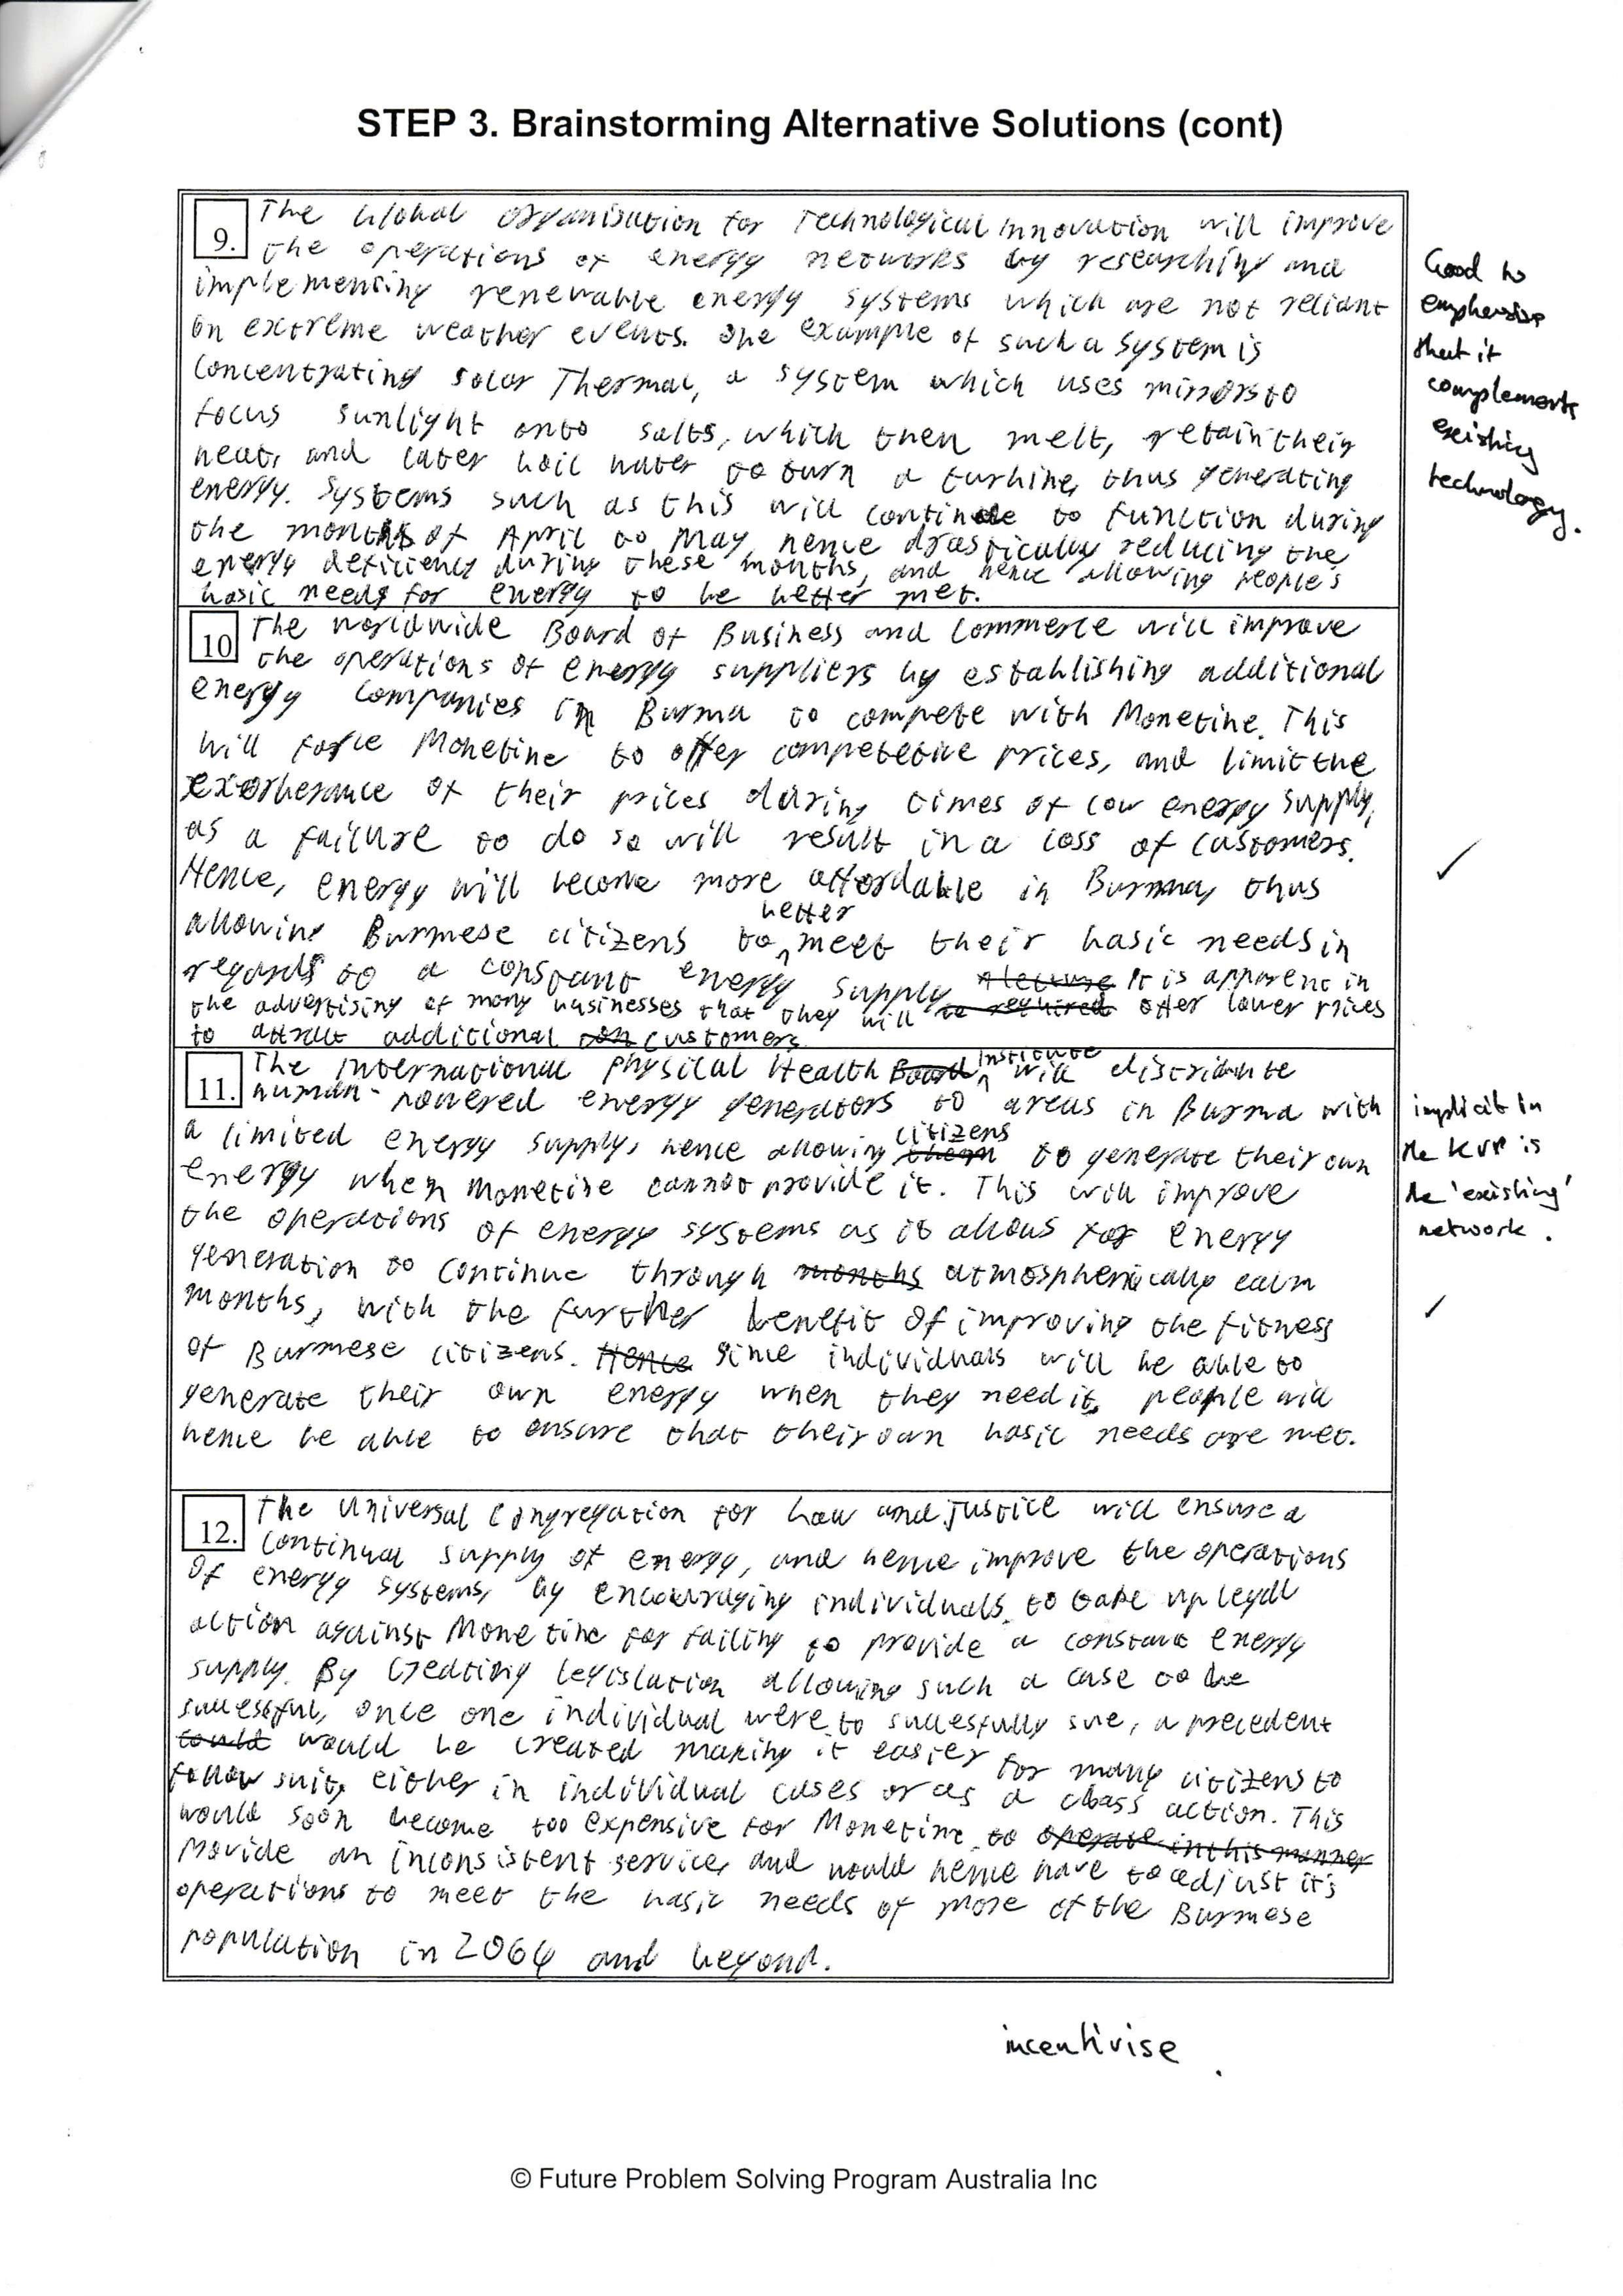 STEP 3. Brainstorming Alternative Solutions (cont)
9. The Global Organisation for Technological Innovation will improve
the operations of energy networks by researching and
implementing renewable energy systems which are not reliant
on extreme weather events. One example of such a system is
Concentrating Solar Thermal, a system which uses mirrors to
focus sunlight onto salts, which then melt, retain their
heat, and later boil water to turn a turbine, thus generating
energy. Systems such as this will continue to function during
the months of April to May, hence drastically reducing the
energy deficiency during these months, and hence allowing people's
basic needs for energy to be better met.
Good to
emphasise
that it
complements
existing
technology.
10 The Worldwide Board of Business and Commerce will improve
the operations of energy suppliers by establishing additional
energy companies in Burma to compete with Monetine. This
will force Monetine to offer competetive prices, and limit the
exorberance of their prices during times of low energy supply,
as a failure to do so will result in a loss of customers.
Hence, energy will become more affordable in Burma, thus
allowing Burmese citizens to better meet their basic needs in
regards to a constant energy supply. It is apparent in
the advertising of many businesses that they will be required offer lower prices
to attract additional customers.
✓
11. The International Physical Health Board Institute will distribute
human-powered energy generators to areas in Burma with
a limited energy supply, hence allowing them citizens to generate their own
energy when Monetine cannot provide it. This will improve
the operations of energy systems as it allows for energy
generation to continue through months atmospherically calm
months, with the further benefit of improving the fitness
of Burmese citizens. Hence Since individuals will be able to
generate their own energy when they need it, people will
hence be able to ensure that their own basic needs are met.
implicit in
the KVP is
the 'existing'
network.
✓
12. The Universal Congregation for Law and Justice will ensure a
continual supply of energy, and hence improve the operations
of energy systems, by encouraging individuals to take up legal
action against Monetine for failing to provide a constant energy
supply. By creating legislation allowing such a case to be
successful, once one individual were to succesfully sue, a precedent
could would be created making it easier for many citizens to
follow suit, either in individual cases or as a class action. This
would soon become too expensive for Monetine to operate in this manner
provide an inconsistent service, and would hence have to adjust it's
operations to meet the basic needs of more of the Burmese
population in 2064 and beyond.
incentivise.
© Future Problem Solving Program Australia Inc